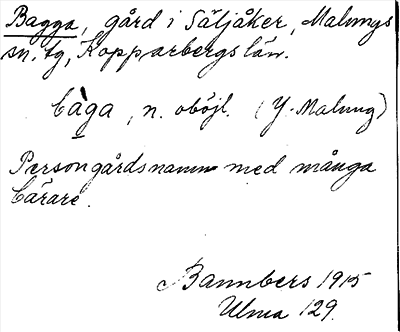 Bagga, gård i Säljåker, Malungs
sn. tg, Kopparbergs län.
bàga, n. oböjl. (Y. Malung)
Persongårdsnamn med många
bärare.
Bannbers 1915
Ulma 129.